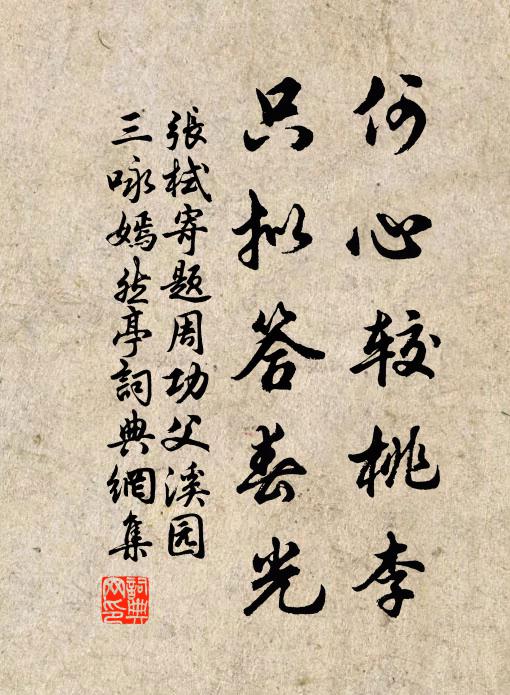 何心较桃李
只拟答春光
張栻寄题周功父溪园
三咏嫣然亭詞典網集
詞典